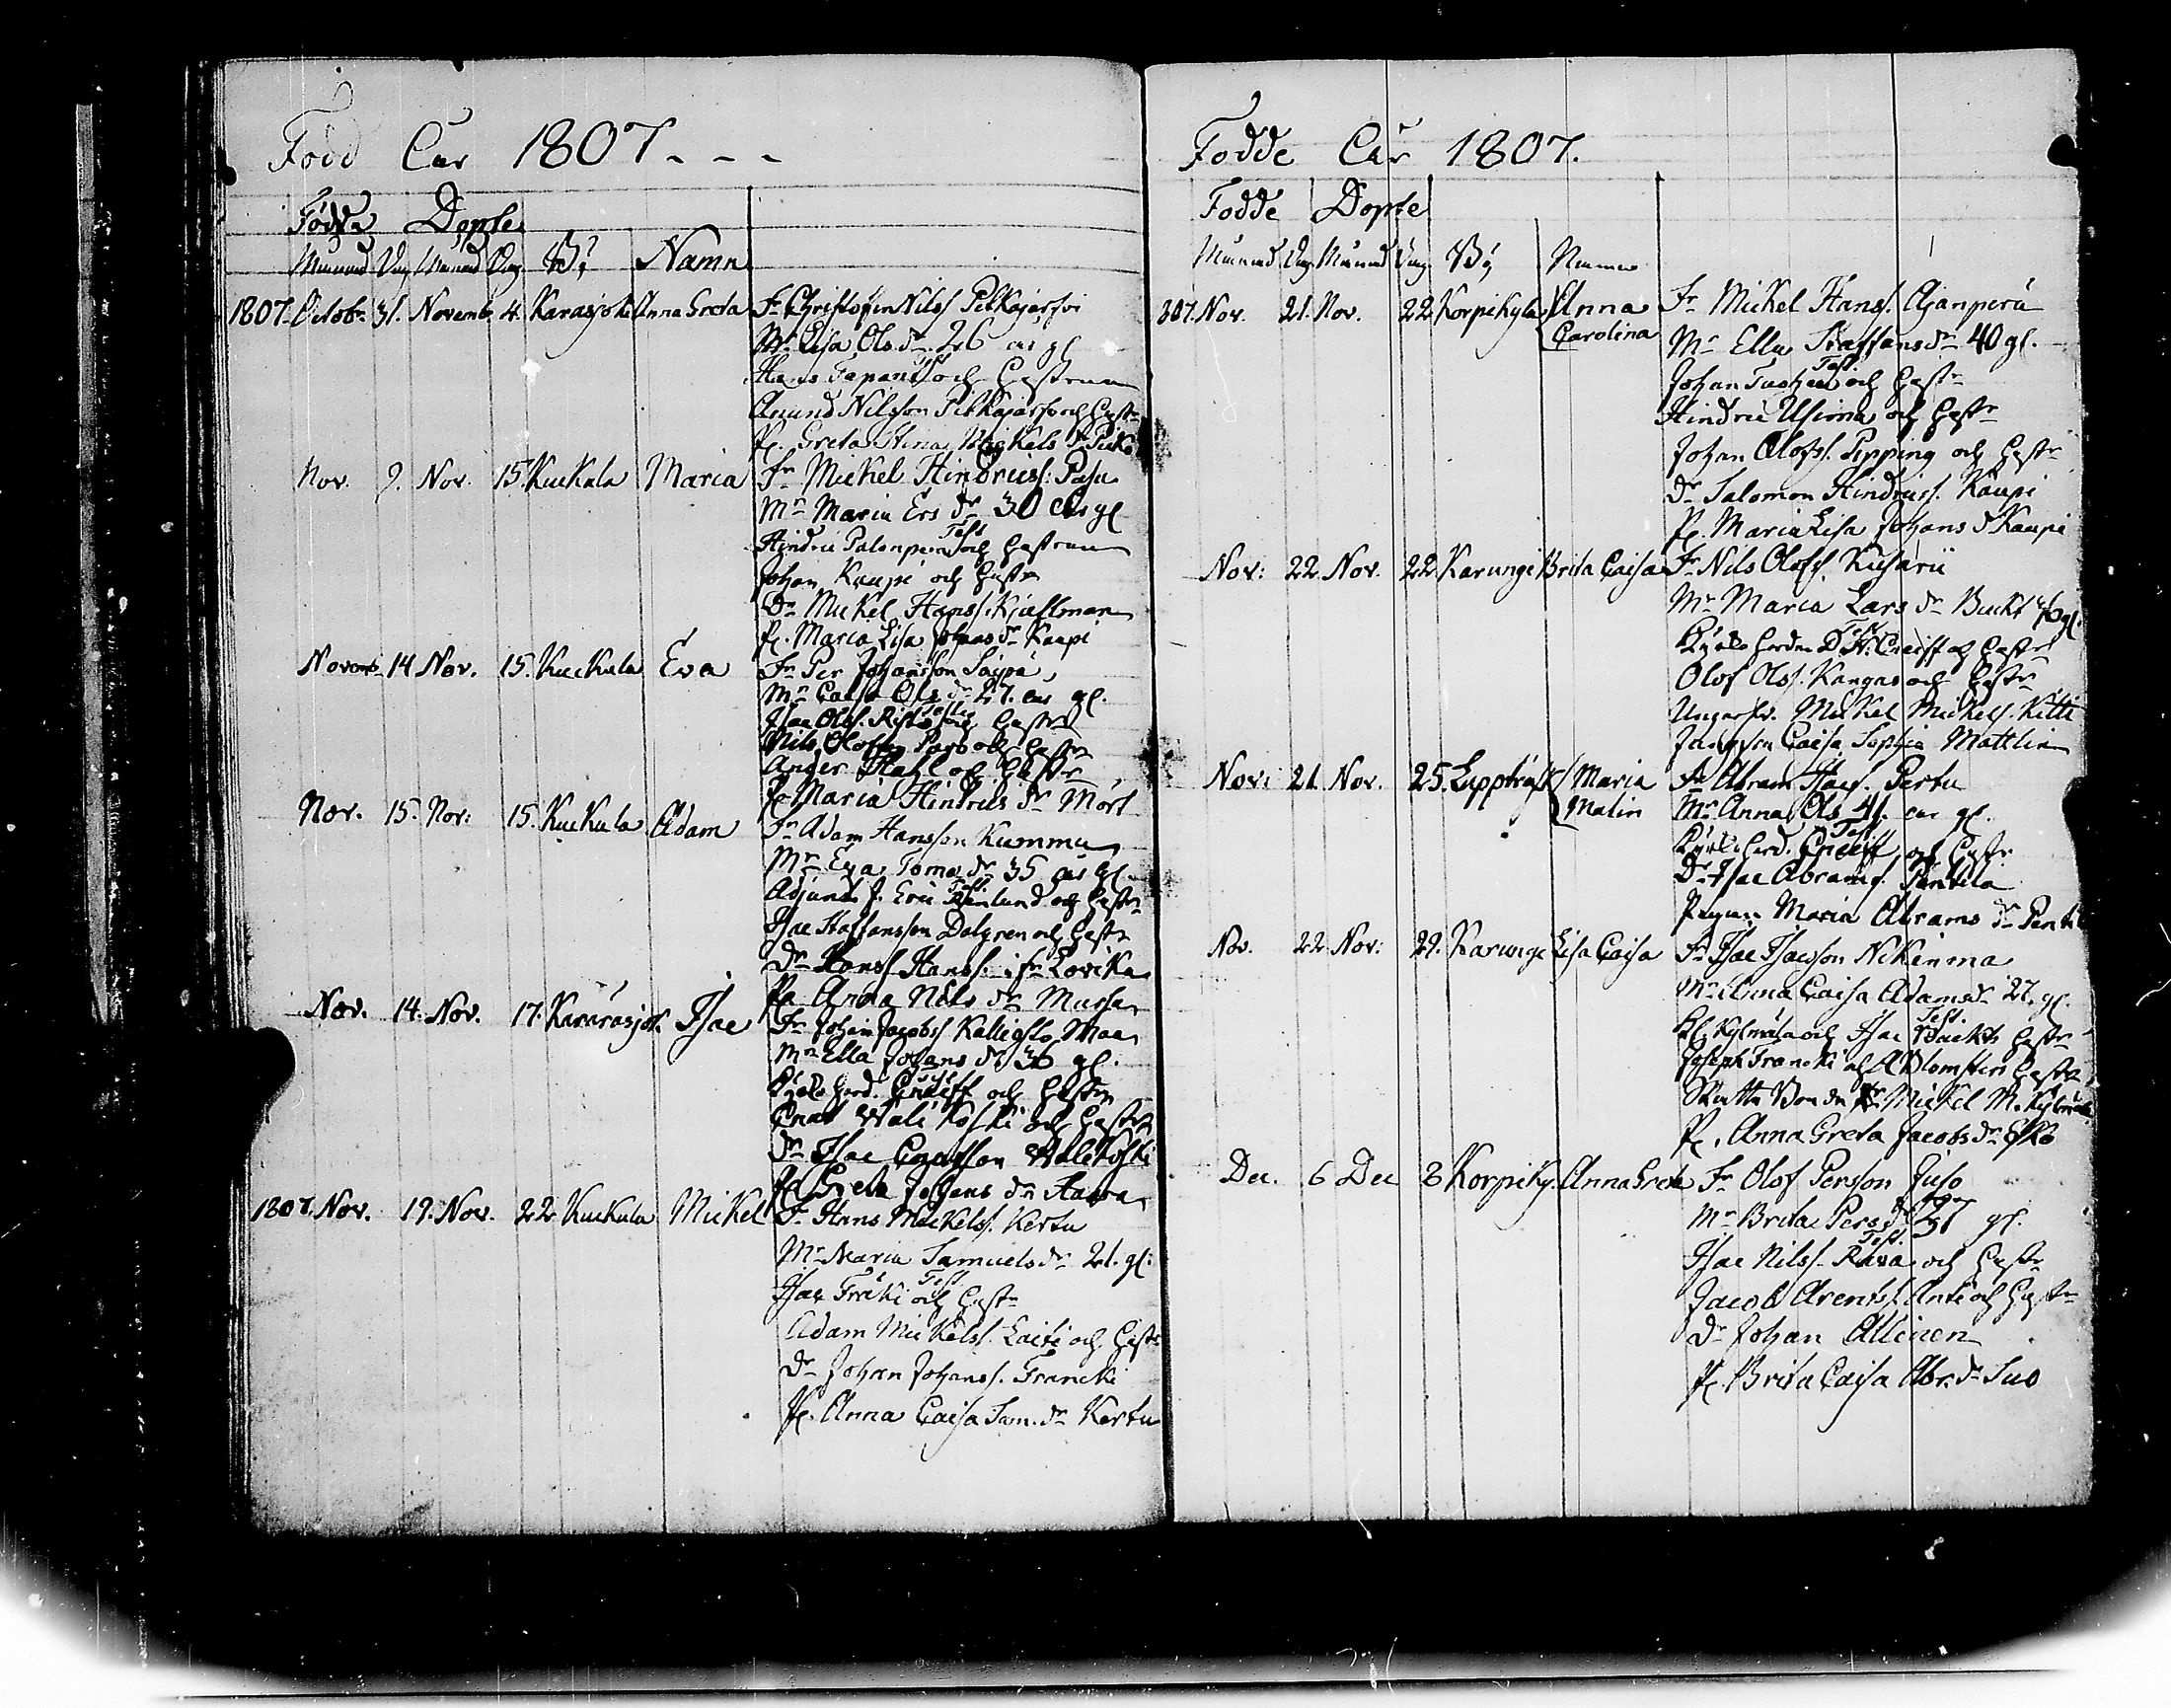 Född Åår 1807 - - -
Födde Dopte
Månad Dag Månad Dag By Namn
1807. Octobr. 31. Novemb. 4. Karasjoki Anna Greta Fr Christofer Nilss Pitkäjärfvi
Mr Lisa Ols dr 26 års gl
Test
Hans Tapani och Hustrun
Anund Nilsson Pitkäjärfvi och Hustr
P. Greta Stina Mickels dr
Nov. 9. Nov. 15. Kuckula Maria Fr Mickel Hindricss: Pasu
Mr Maria Ers dr 30 års gl
Test
Hindric och Hustrun
Johan Kaupi och Hustr
Dr Mickel Hanss. Kjellman
P. Maria Lisa Johans dr Kaupi
Novemb. 14 Nov. 15. Kuckula Eva Fr Per Johansson
Mr Caisa Ols dr 27. års gl.
Isac Olss. Risto och Hustr
Nils Olofss och Hustr
Ander Stahl och Hustr
P. Maria Hindrics dr Mört
Nov. 15. Nov: 15. Kuckula Adam Fr Adam Hansson Kummu
Mr Eva Toma dr 35 års gl.
Test
Adjunct J. Eric och Hustr
Isac Staffansson Dalgren och Hustr
Dr Hanss Hanss. Lovika
P. Anna Nils dr Mussa
Nov. 14. Nov. 17. Isac Fr Johan Jacobss Maa
Mr Ella Johans dr 36 gl.
Kyrko herd. Cneiff och Hustr
Cnut Wali Koski och Hustr
Dr Isac Cnutsson Walikoski
P. Greta Johans dr
1807. Nov. 19. Nov. 22 Kuckula Mickel Fr Hans Mickelss. Kertu
Mr Maria Samuels dr 21. gl:
Test
Isac Fräki och Hustr
Adam Mickelss. Laiti och Hustr
Dr Johan Johanss. Francki
P. Anna Caisa Sam. dr Kertu
Födde Åår 1807.
Födde Dopte
Månad Dag Månad Dag By Namn
807. Nov. 21. Nov. 22. Korpikyla Anna Carolina Fr Mickel Hanss. Ajanperä
Mr Ella Staffans dr 40 gl.
Test
Johan och Hustr
Hindric och Hustr
Johan Olofss. Pipping och Hustr
Dr Salomon Hindricss. Kaupi
P. Maria Lisa Johans d Kaupi
Nov: 22. Nov. 22 Karungi Brita Caisa Fr Nils Olofss.
Mr Maria Lars dr Buckt gl.
Test
Kyrko herden D. H. Cneiff och Hustr
Olof Olss. Kangas och Hustr
Mickel Mickelss. Kitti
Caisa Sophia Mattlin
Nov: 21. Nov. 25. Luppträsk Maria Malin Fr Abram Isacs. Pertu
Mr Anna Ols 41. års gl.
Test
Kyrko herd. Cneiff och Hustr
Dr Isac Abrams. Pentila
Pigan Maria Abrams dr
Nov. 22 Nov: 29. Karungi Lisa Caisa Fr Isac Isacsson Nikinma
Mr Anna Caisa Adams dr 27. gl.
Test.
Kl. Kylmäla och Isac Buckts Hustr
Joseph Francki och A. Blomster Hustr
Skatte Bonden Mickel M. Kylmäla
P. Anna Greta Jacobs dr
Dec. 6 Dec 8 Korpiky. Anna Greta Fr Olof Persson Juso
Mr Brita Pers dr 37 gl.
Test.
Isac Nilss. Rava och Hustr
Jacob Arentss. Anti och Hustr
Dr Johan Allinen
P. Brita Caisa Abr. dr Suo